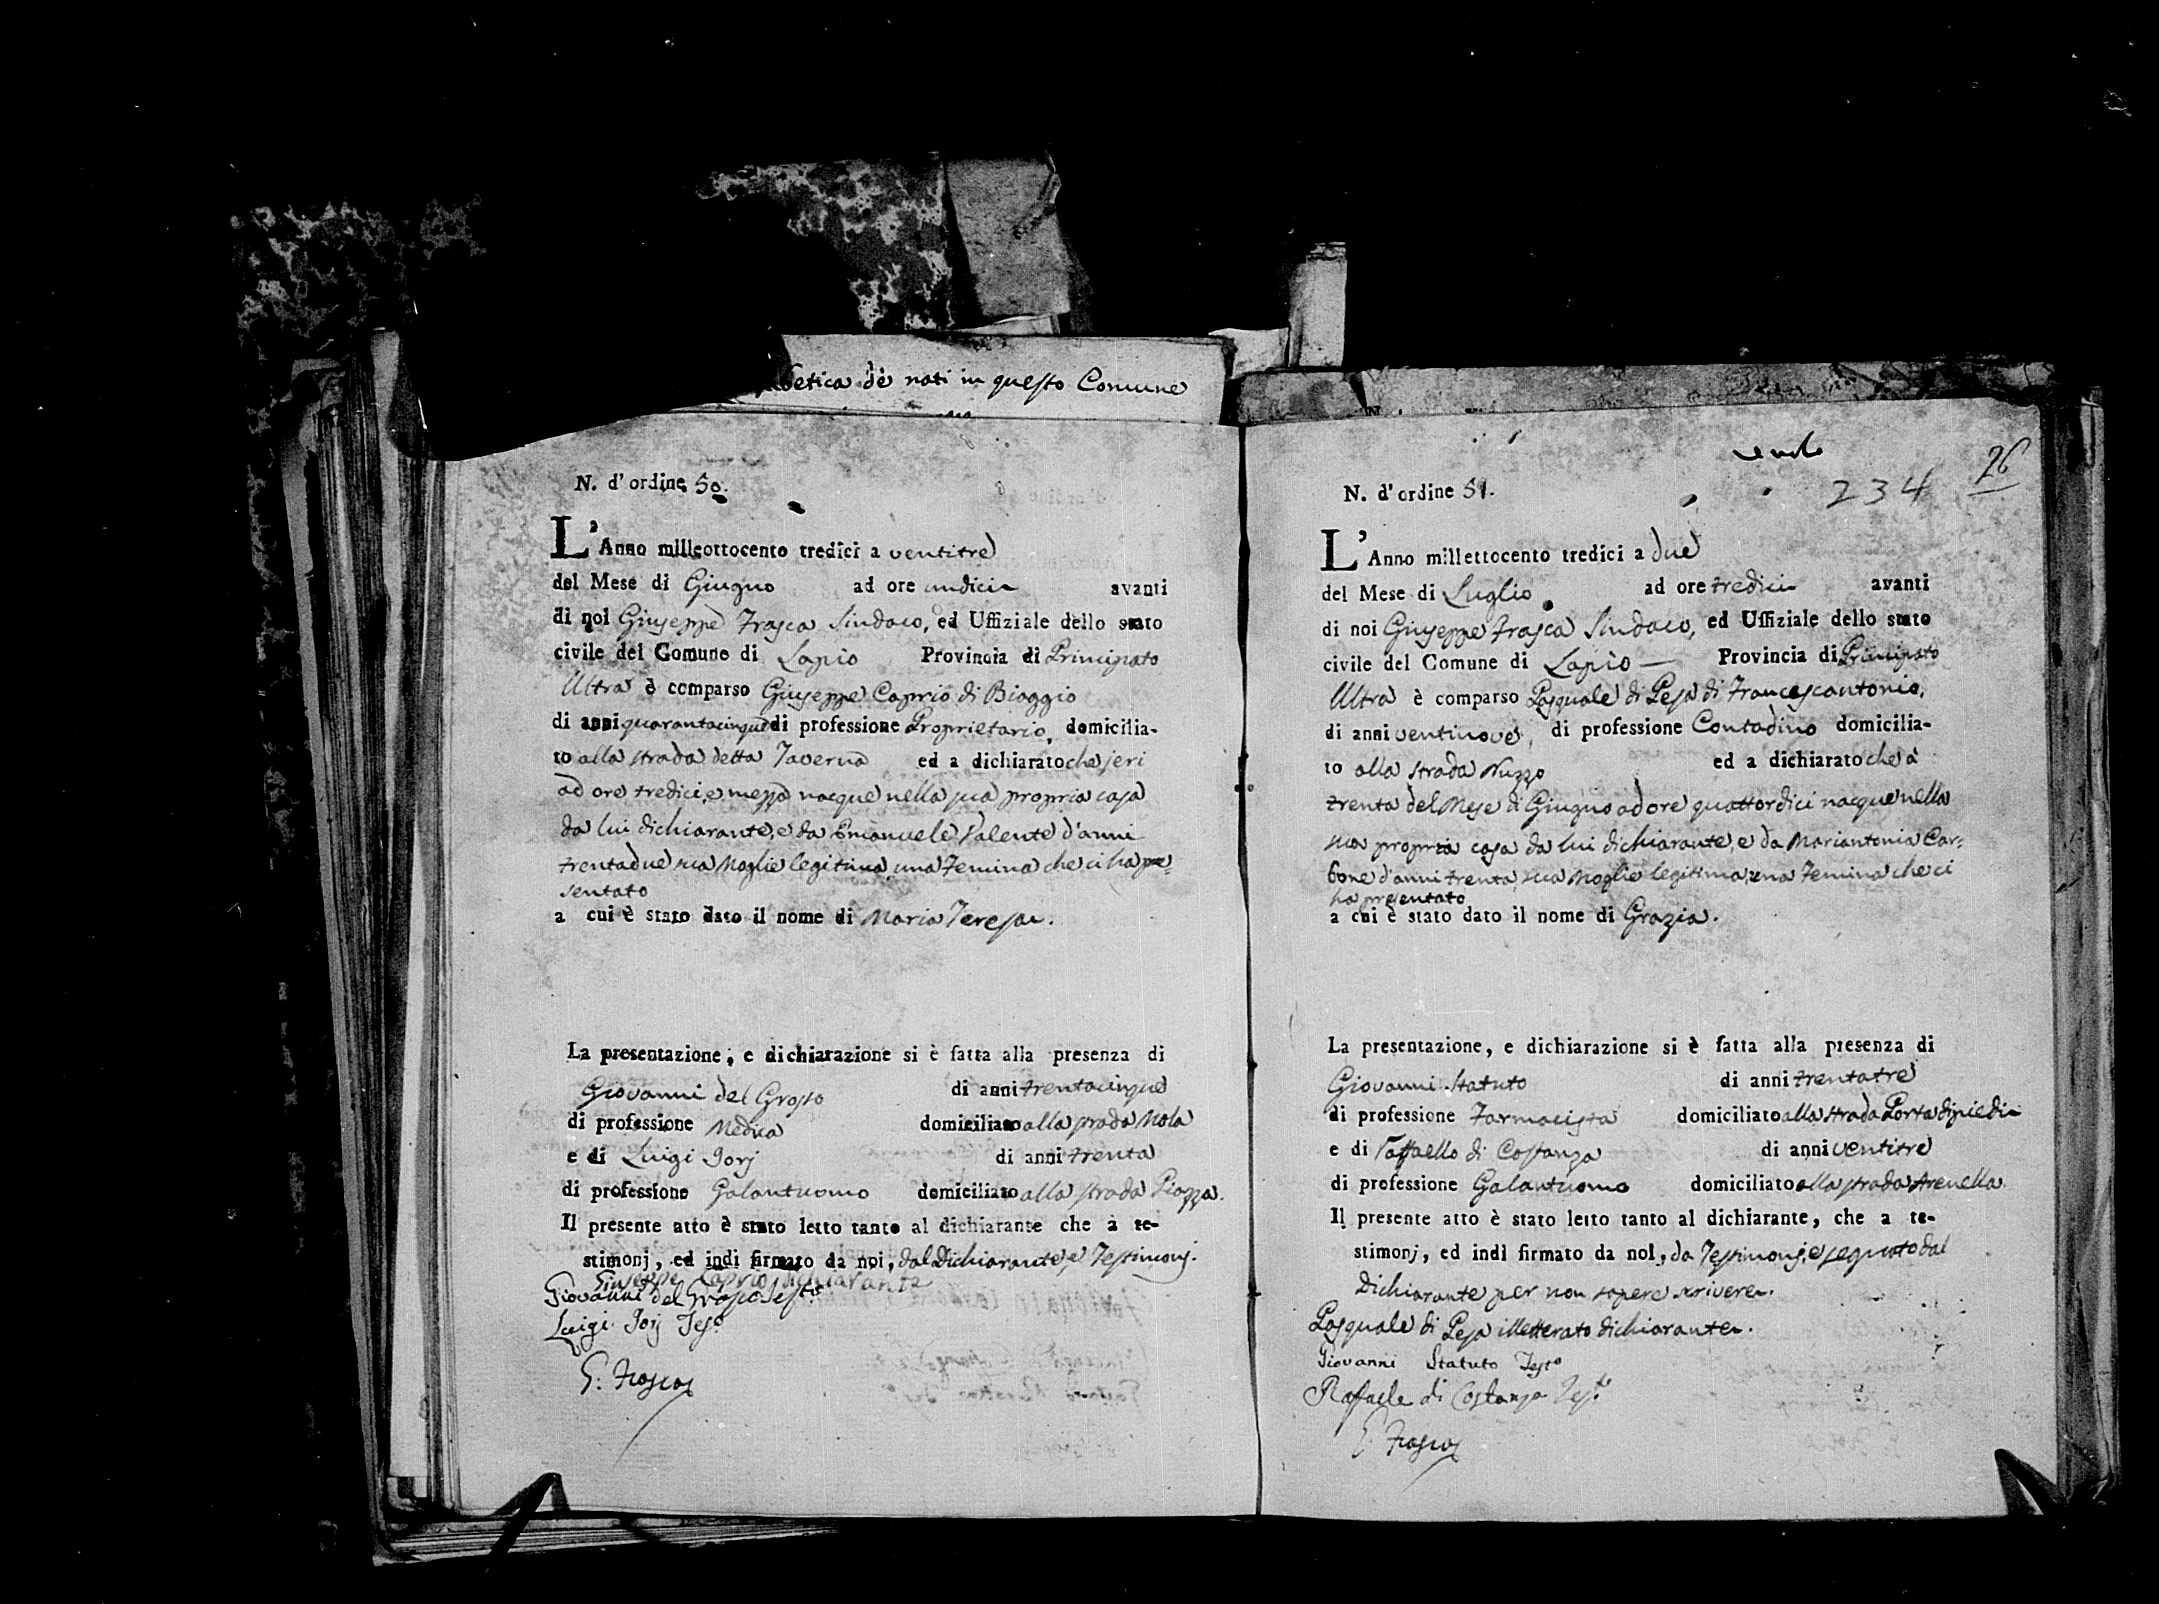 betica de nati in questo Comune
N. d'ordine 50.
L'Anno milleottocento tredici a ventitre
del Mese di Giugno ad ore undici avanti
di noi Giuseppe Frasca Sindaco, ed Uffiziale dello stato
civile del Comune di Lapio Provincia di Principato
Ultra è comparso Giuseppe Caprio di Biaggio
di anni quarantacinque di professione Proprietario, domicilia-
to alla strada detta Taverna ed a dichiarato che jeri
ad ore tredici, e mezza nacque nella sua propria casa
da lui dichiarante, e da Emanuele Valente d'anni
trentadue sua Moglie legitima una Femina che ci ha pre=
sentato
a cui è stato dato il nome di Maria Teresa.
La presentazione, e dichiarazione si è fatta alla presenza di
Giovanni del Grosso di anni trentacinque
di professione Medica domiciliato alla strada Nola
e di Luigi Jorj di anni trenta
di professione Galantuomo domiciliato alla strada Piazza.
Il presente atto è stato letto tanto al dichiarante che a te-
stimonj, ed indi firmato da noi, dal Dichiarante, e Testimonj.
Giuseppe Caprio dichiarante
Giovanni del Grosso Testo
Luigi Jorj Teso
G. Frasca
26
234
N. d'ordine 51.
L'Anno millettocento tredici a due
del Mese di Luglio ad ore tredici avanti
di noi Giuseppe Frasca Sindaco, ed Uffiziale dello stato
civile del Comune di Lapio Provincia di Principato
Ultra è comparso Pasquale di Pesa di Francescantonio,
di anni ventinove, di professione Contadino domicilia-
to alla strada Nuzzo ed a dichiarato che à
trenta del Mese di Giugno ad ore quattordici nacque nella
sua propria casa da lui dichiarante, e da Mariantonia Car=
bone d'anni trenta, sua Moglie legitima, una Femina che ci
ha presentato
a cui è stato dato il nome di Grazia.
La presentazione, e dichiarazione si è fatta alla presenza di
Giovanni Statuto di anni trentatre
di professione Farmacista domiciliato alla strada Porta di piedi
e di Raffaello di Costanza di anni ventitre
di professione Galantuomo domiciliato alla strada Arenella.
Il presente atto è stato letto tanto al dichiarante, che a te-
stimonj, ed indi firmato da noi, da Testimonj, e segnato dal
Dichiarante per non sapere scrivere.
Pasquale di Pesa illetterato dichiarante.
Giovanni Statuto Testo
Raffaele di Costanza Testo
G. Frasca